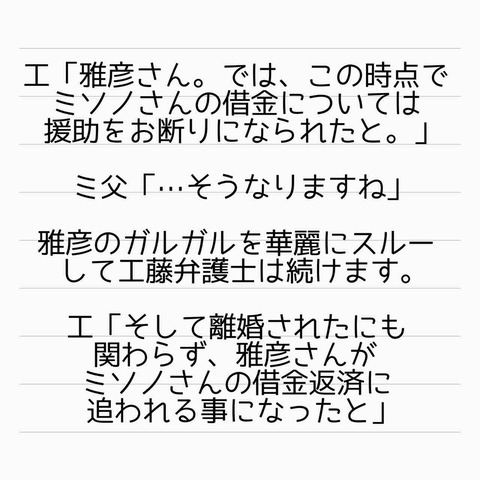 工「雅彦さん。では、この時点で
ミソノさんの借金については
援助をお断りになられたと。」
ミ父「…そうなりますね」
雅彦のガルガルを華麗にスルー
して工藤弁護士は続けます。
工「そして離婚されたにも
関わらず、雅彦さんが
ミソノさんの借金返済に
追われる事になったと」